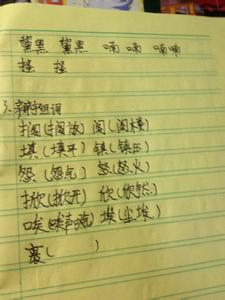 黛黑 黛黑 喃 喃 喃喃
搔 搔
3、辨字组词
搁(搁放) 阁(阁楼)
填(填平) 镇(镇压)
怨(怨气) 怒(怒火)
掀(掀开) 欣(欣然)
唉(唉声叹) 埃(尘埃)
裹( )